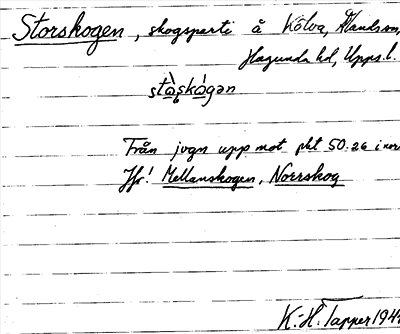 Storskogen, skogsparti å Kölva, Ålandsson,
Hagunda hd, Upps. l.
stɷ̀ɽskógan
Från jvgn upp mot pkt 50.26 i norr
Jfr! Mellanskogen, Norrskog
K.-H. Tapper 194